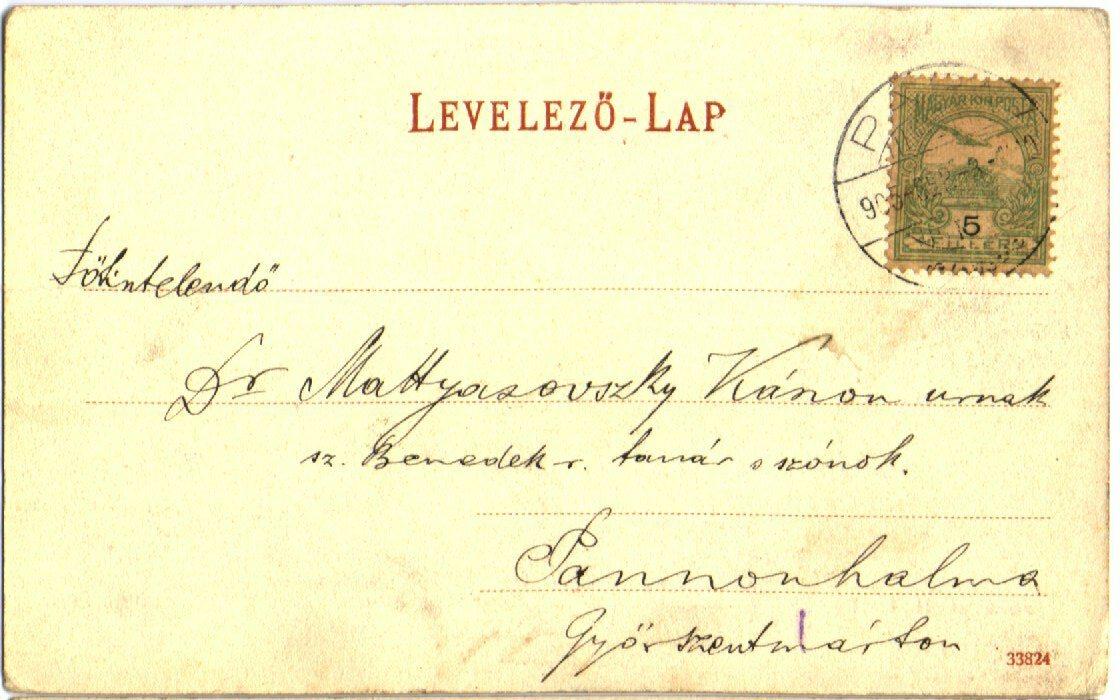 LEVELEZŐ-LAP
MAGYAR KIR. POSTA
5
FILLÉR
Főtisztelendő
Dr Mattyasovszky Kázmér urnak
sz. Benedek-r. tanár s szónok.
Pannonhalma
Győrszentmárton
33824